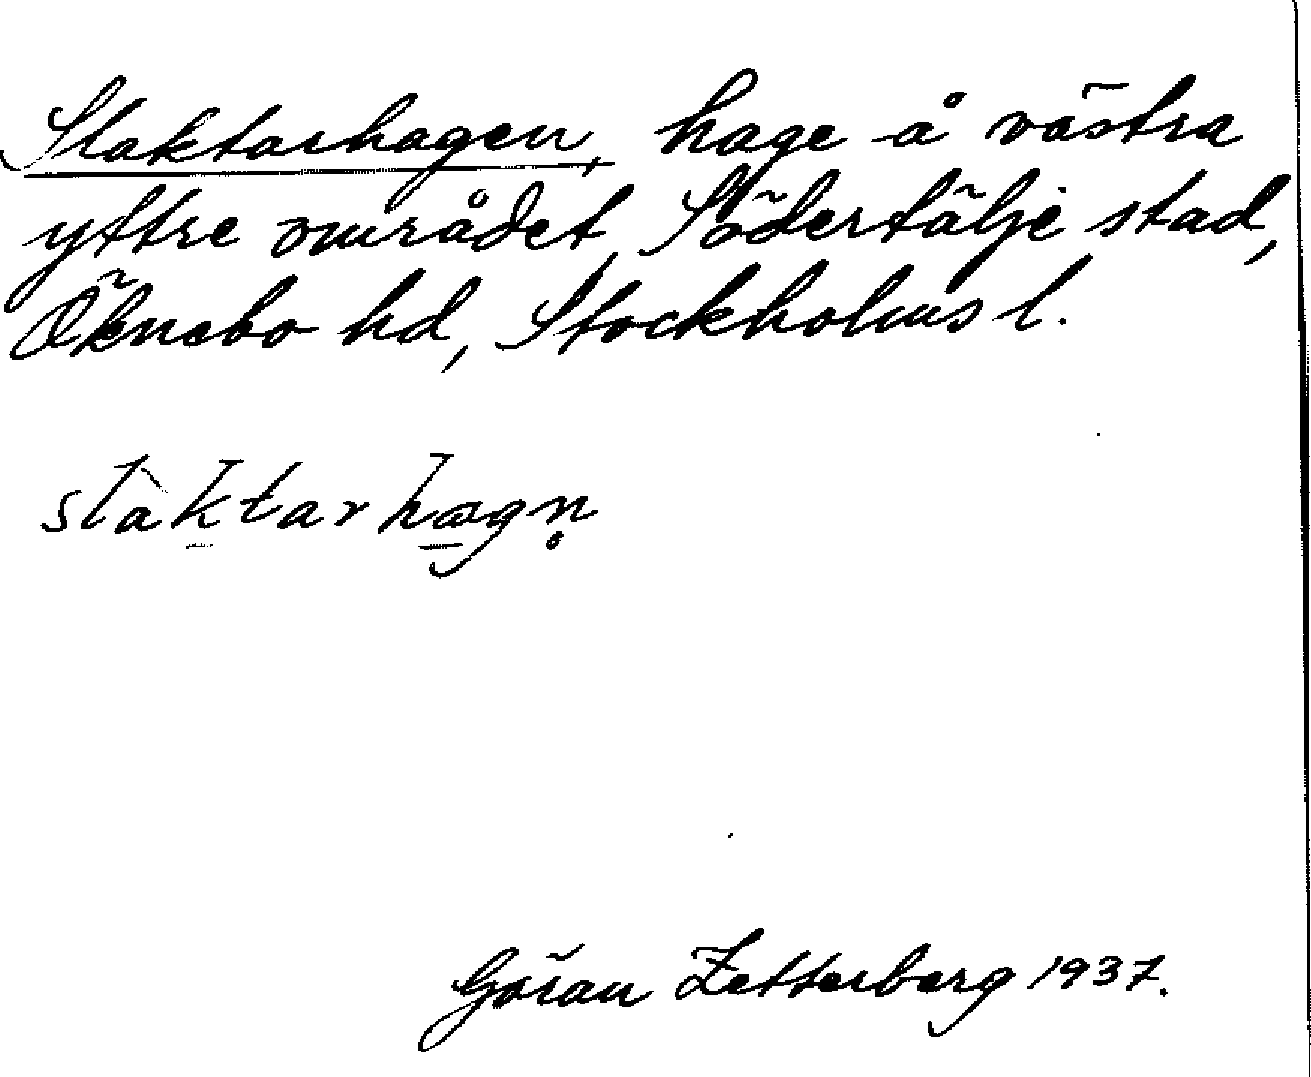 Slaktarhagen, hage å västra
yttre området, Södertälje stad,
Öknebo hd, Stockholms l.
slàk̲tarhɷ̲gn̥
Göran Zetterberg 1937.